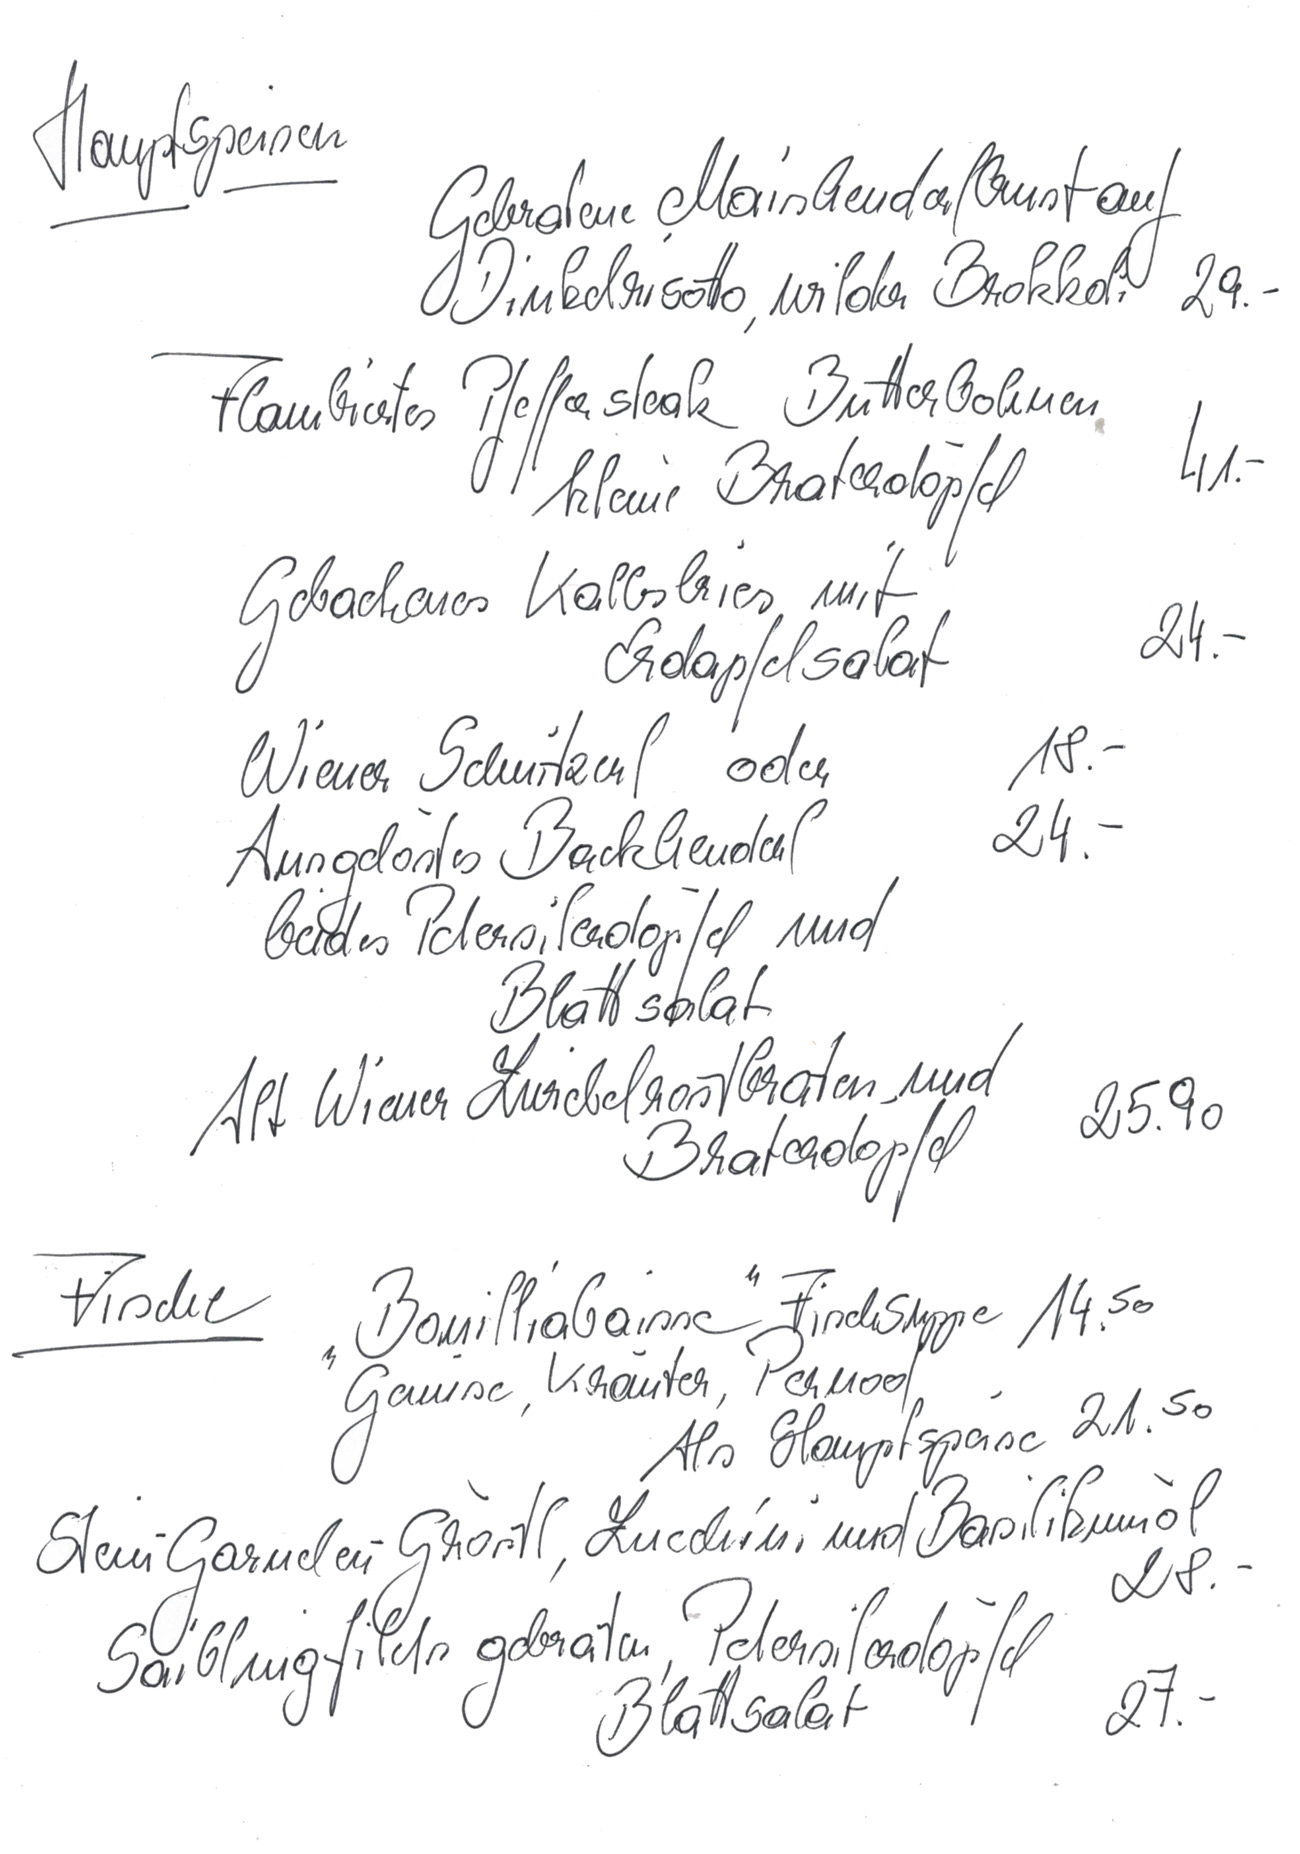 Hauptspeisen
Gebratene Maishenderlbrust auf
Dinkelrisotto, wilder Brokkoli 29.-
Flambiertes Pfeffersteak Butterbohnen
kleine Braterdöpfel 41.-
Gebackenes Kalbsbries mit
Erdapfelsalat 24.-
Wiener Schnitzerl oder 18.-
Ausgelöstes Backhenderl 24.-
beides Petersilerdöpfel und
Blattsalat
Alt Wiener Zwiebelrostbraten und
Braterdöpfel 25.90
Fische „Bouilliabaisse" Fischsuppe 14.50
Gemüse, Kräuter, Pernod
Als Hauptspeise 21.50
Stein Garnelen Gröstl, Zucchini und Basilikumöl
28.-
Saiblingfilets gebraten, Petersilerdöpfel
Blattsalat 27.-